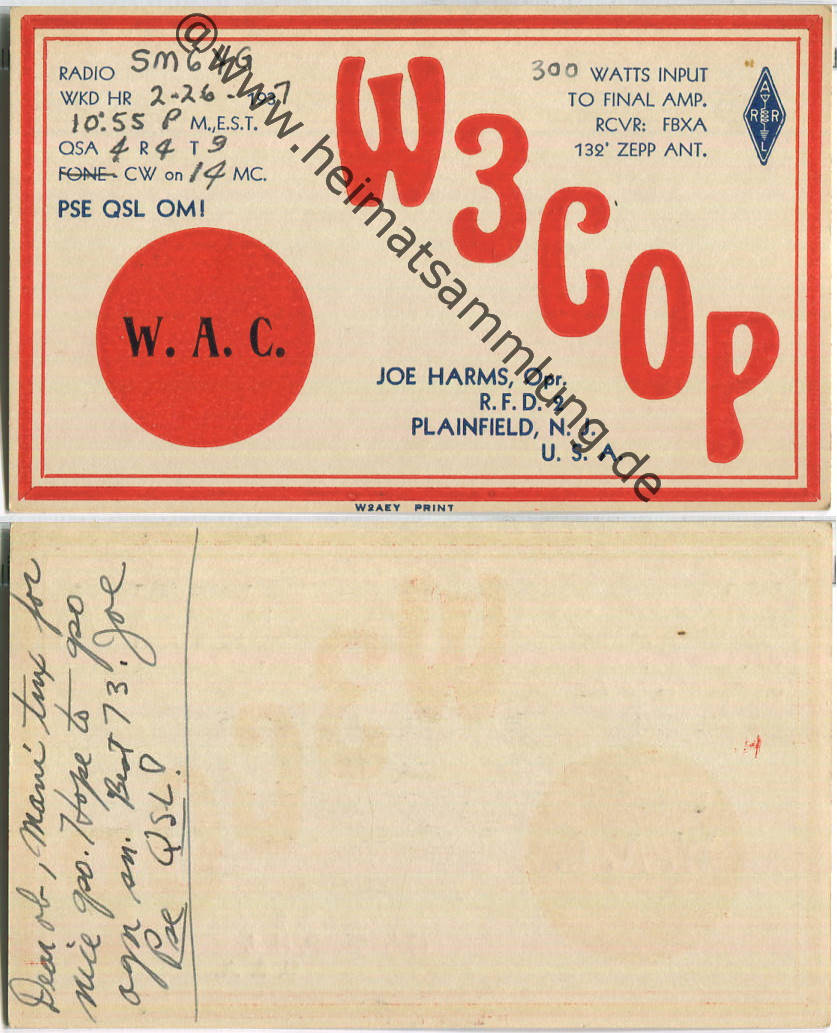 RADIO SM6
WKD HR 2-26-1937
10:55 P M.,E.S.T.
QSA 4 R 4 T 9
FONE - CW on 14 MC.
PSE QSL OM!
W3COP
300 WATTS INPUT
TO FINAL AMP.
RCVR: FBXA
132' ZEPP ANT.
A
R R
L
W. A. C.
JOE HARMS, Opr.
R. F. D. 2
PLAINFIELD, N. J.
U. S. A.
W2AEY PRINT
@www.heimatsammlung.de
Dear ob, Mani tnx for
nice qso. Hope to qso
agn sn. Best 73. Joe
Pse QSL!